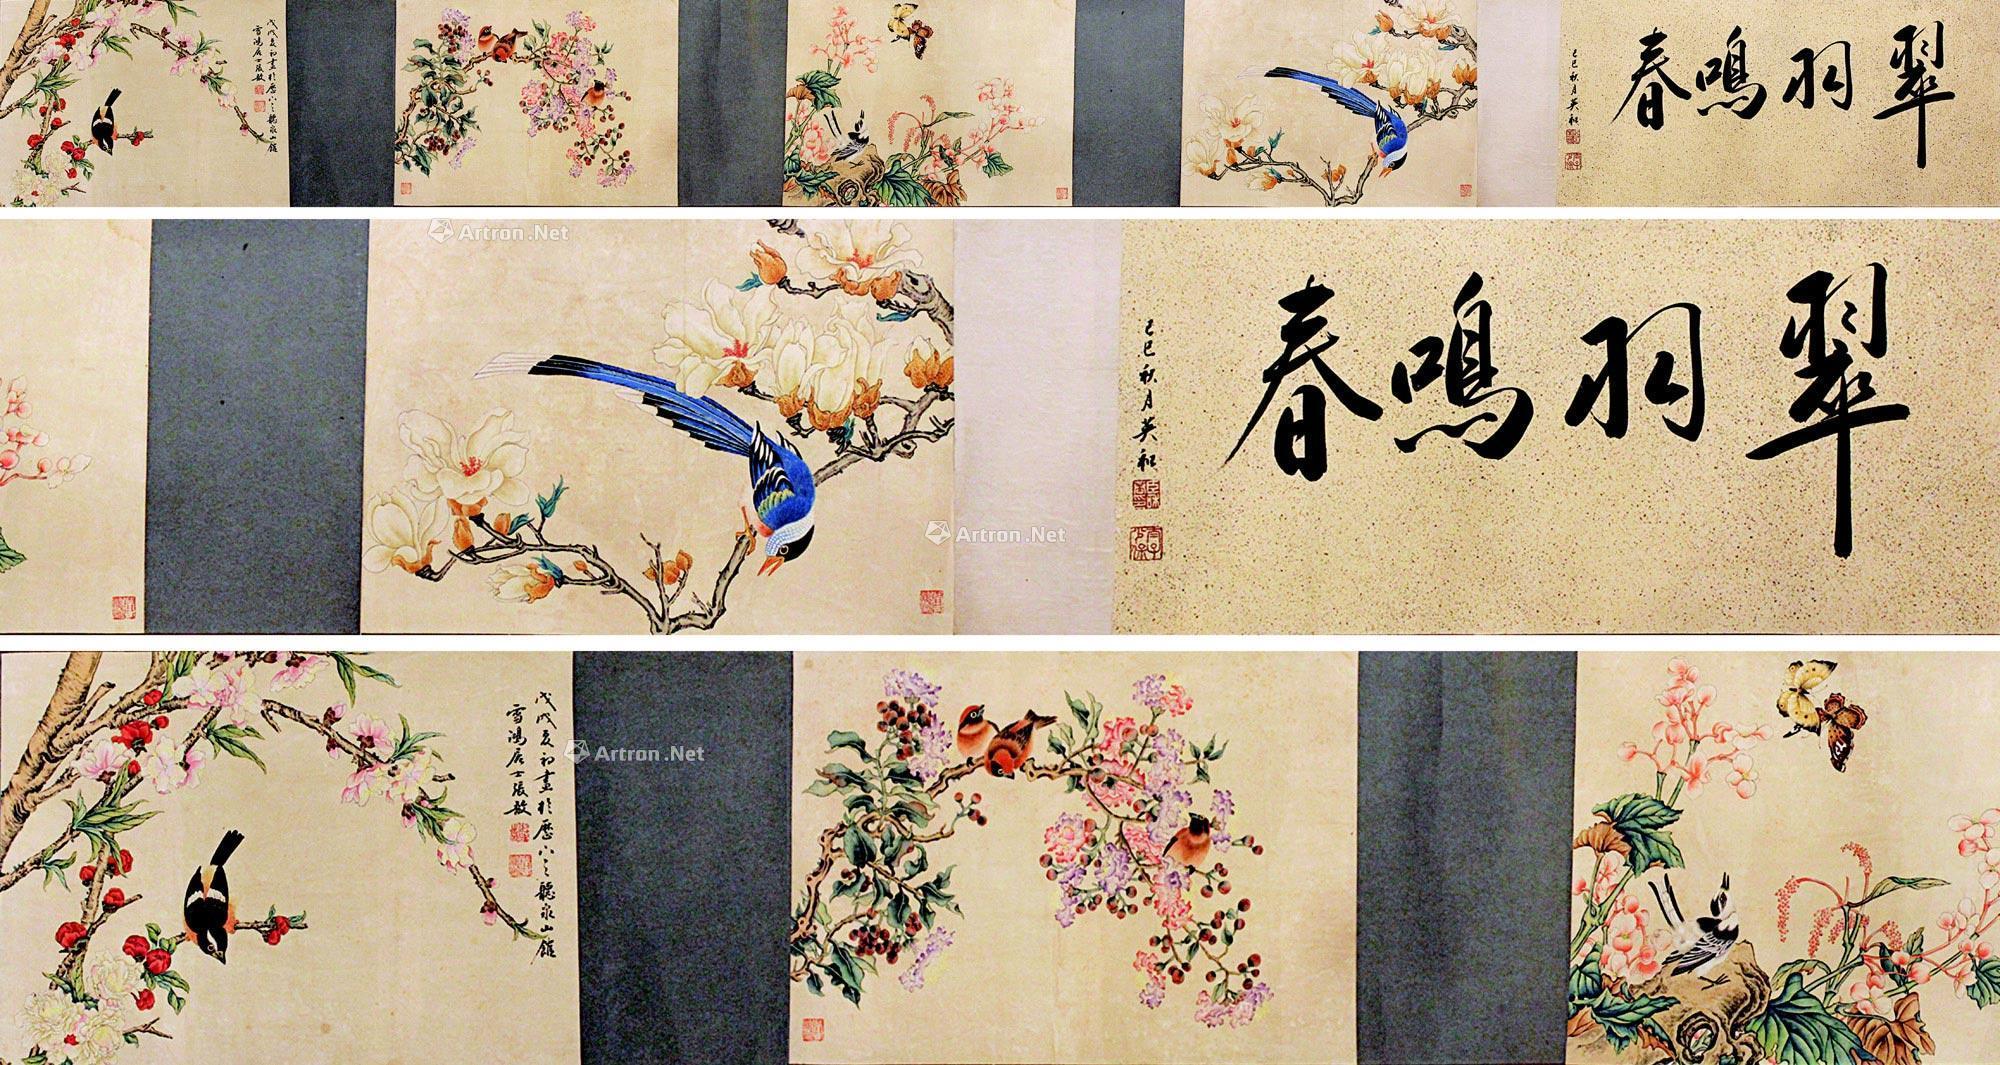 翠羽鳴春
己巳秋月英和
戊戌夏初畫於歷下之聽泉山館
雪鴻居士張敔
翠羽鳴春
己巳秋月英和
戊戌夏初畫於歷下之聽泉山館
雪鴻居士張敔
Artron.Net
Artron.Net
Artron.Net